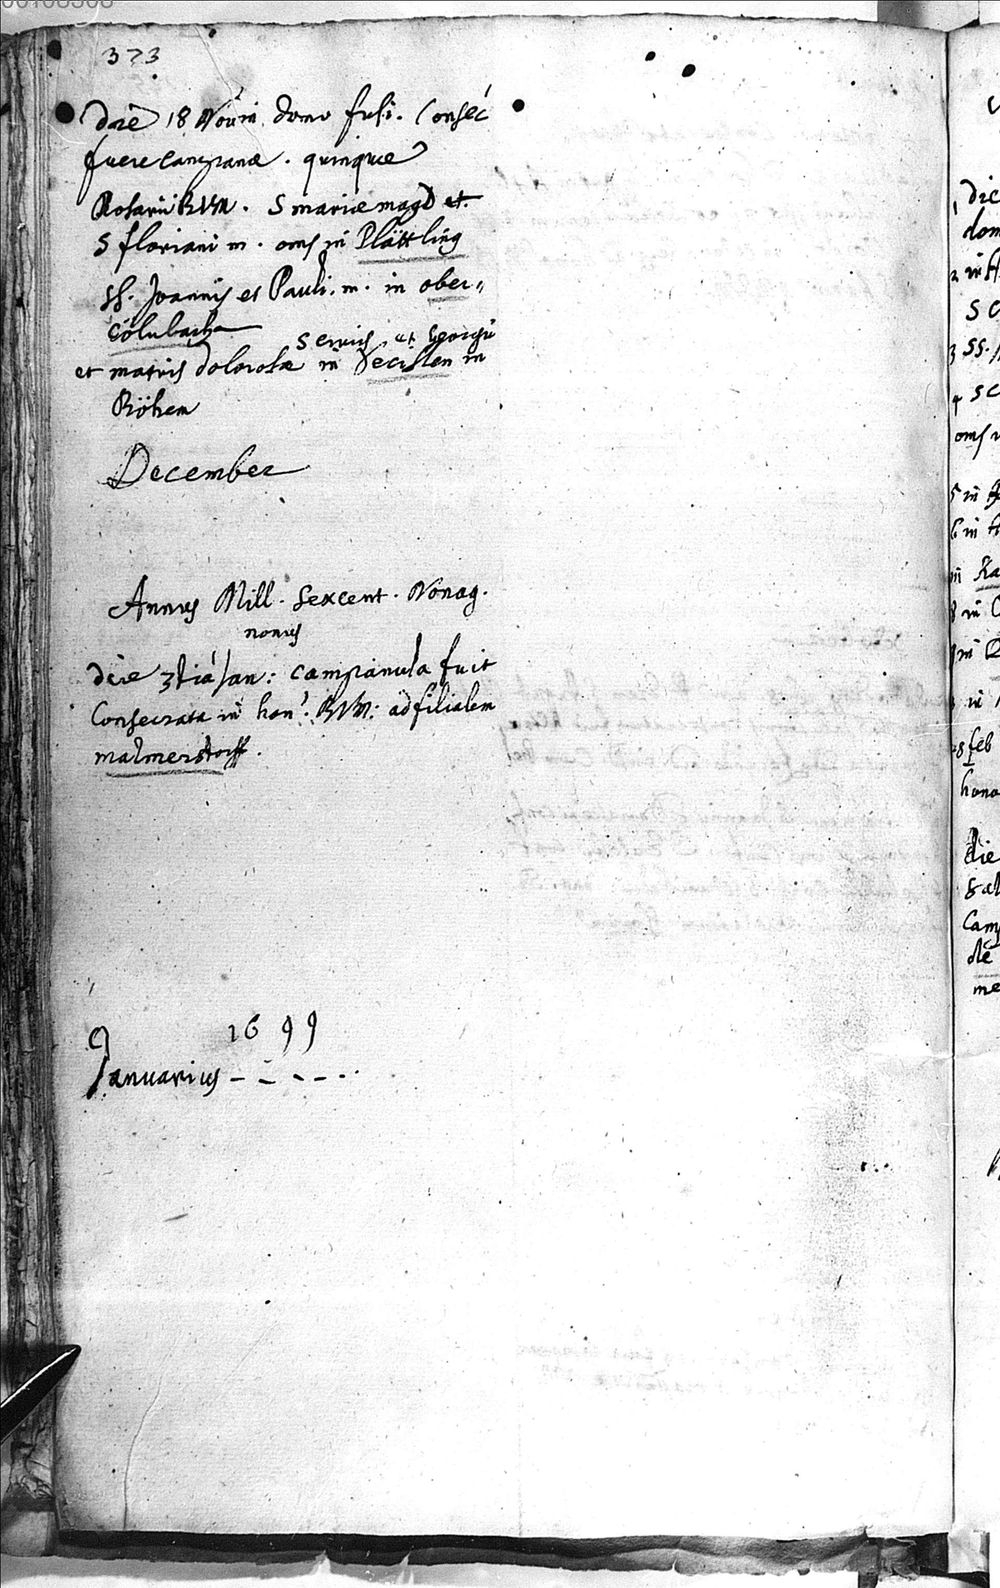 373
die 18 Novm. domo fusi. Consec
fuere campanæ. quinque
Rosarii BVM. S mariæ magd et
S floriani m. oms in Plättling
SS. Joannis et Pauli. m. in ober„
Cölnbach
et Georgii
et matris dolorosæ in in
Röhem
December
Annus Mill. Sexcent. Nonag.
nonus
die 3tia Jan: campanula fuit
Consecrata in hon: BVM: ad filialem
malmerstorff.
1699
Januarius - - - - - . .
die
dom
in
SS.
oms
5 in
6 in
in Ka
8 in
in
in
28 feb
hono
die
Cam
de
me